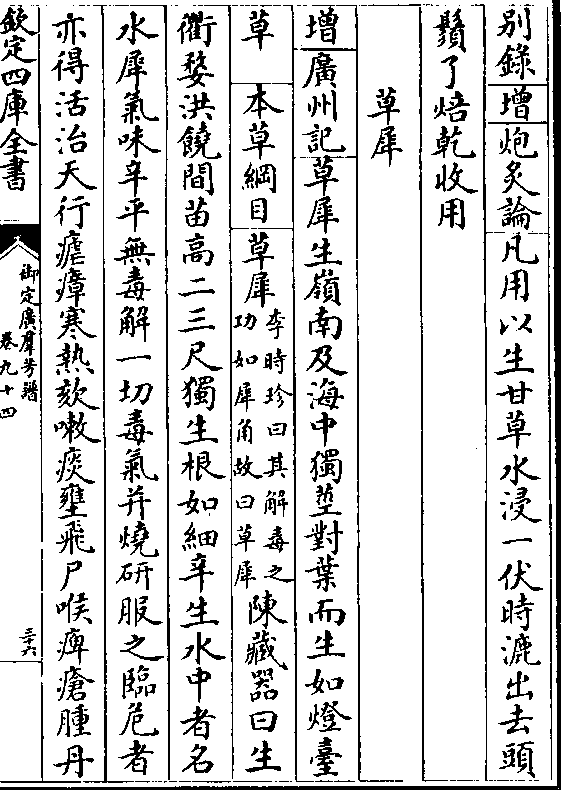 別錄增炮炙論凡用以生甘草水浸一伏時漉出去頭
鬚了焙乾收用
草犀
增廣州記草犀生嶺南及海中獨莖對葉而生如燈臺
草本草綱目草犀李時珍曰其解毒之功如犀角故曰草犀陳藏器曰生
衢婺洪饒間苗高二三尺獨生根如細辛生水中者名
水犀氣味辛平無毒解一切毒氣并燒研服之臨危者
亦得活治天行瘧瘴寒熱欬嗽痰壅飛尸喉痺瘡腫丹
欽定四庫全書
御定廣羣芳譜
卷九十四
三十六